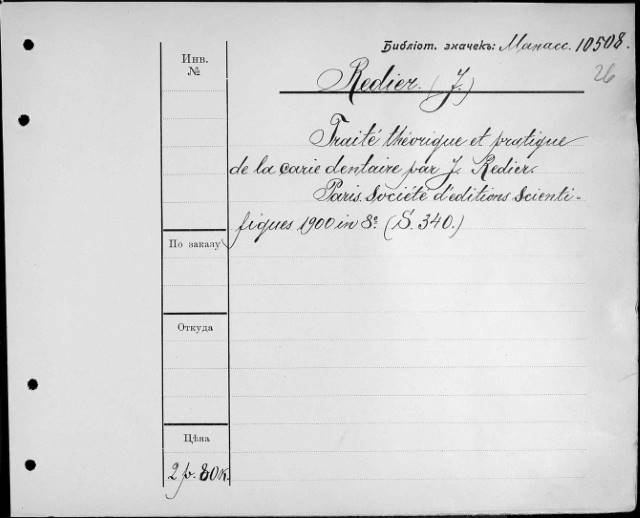 Библіот. значекъ: Манасс. 10508.
26
Инв.
№
Redier. (J.)
Traité théorique et pratique
de la carie dentaire par J. Redier.
Paris. Société d'editions Scienti-
fiques 1900 in 8º. (S. 340.)
По заказу
Откуда
Цѣна
2 р. 80 к.